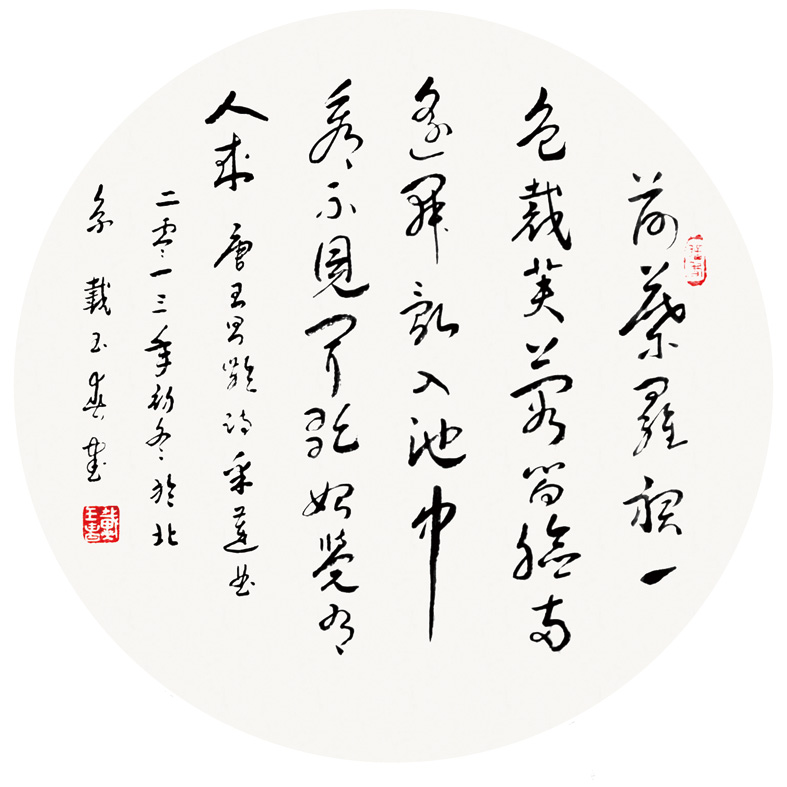 荷葉羅裙一
色裁芙蓉向臉兩
邊開亂入池中
看不見聞歌始覺有
人來 唐王昌齡詩采蓮曲
二零一三年初冬於北
京 戴玉春